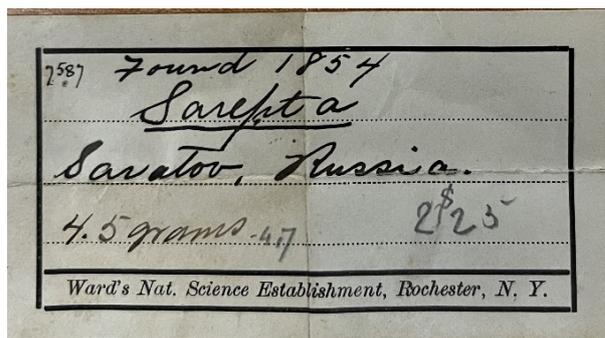 7587 Found 1854
Sarepta
Saratov, Russia.
4.5 grams - 4.7 2$25
Ward's Nat. Science Establishment, Rochester, N. Y.